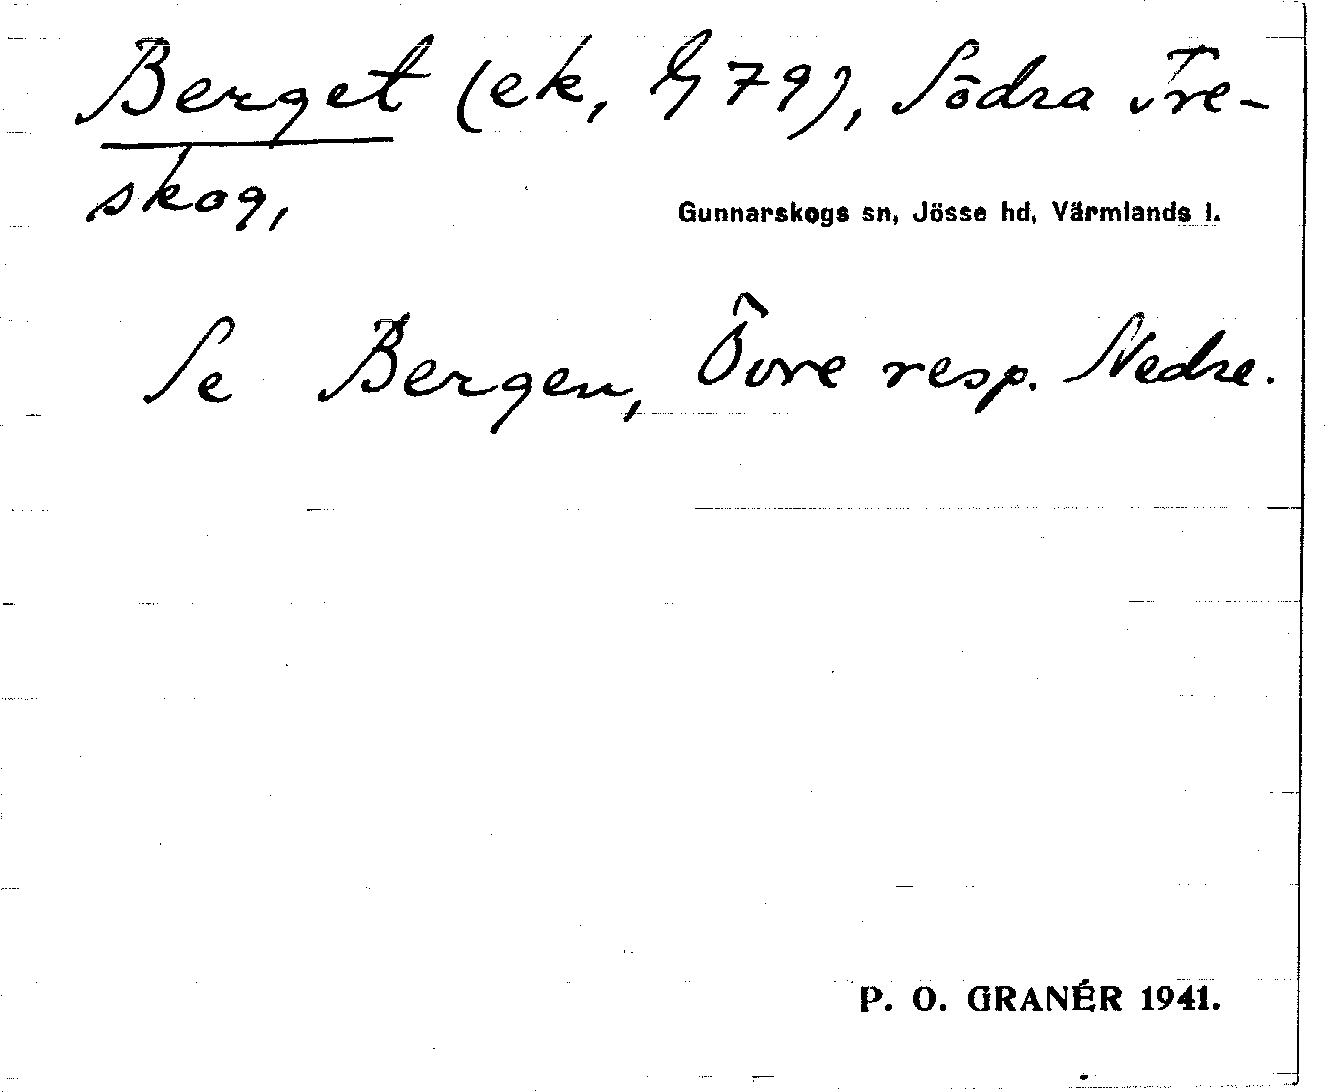 Berget (ek, G 79), Södra Tre-
skog,
Gunnarskogs sn, Jösse hd, Värmlands l.
Se Bergen, Övre resp. Nedre.
P. O. GRANÉR 1941.